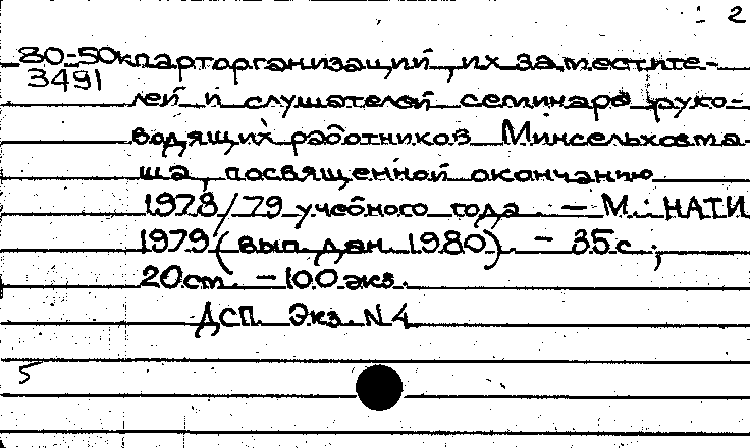 2
80-50к парторганизаций, их заместите-
3491
лей и слушателей семинара руко-
водящих работников Минсельхозма-
ша, посвященной окончанию
1978/79 учебного года. — М.: НАТИ
1979 (вып. дан. 1980). — 35 с.;
20 см. — 100 экз.
ДСП. Экз. N 4
5